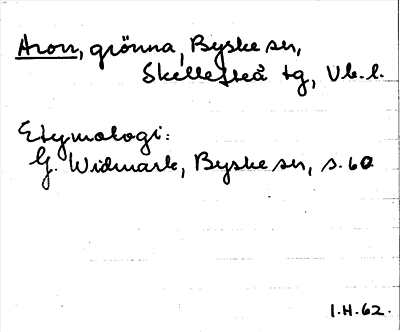 Aron, grönna, Byske sn,
Skellefteå tg, Vb. l.
Etymologi:
G. Widmark, Byske sn, s. 60
I.H. 62.